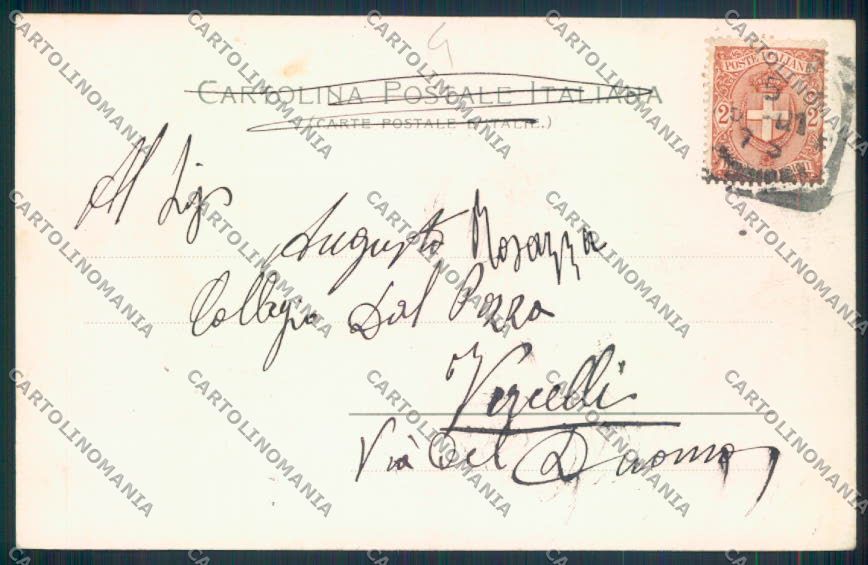 CARTOLINA POSTALE ITALIANA
(CARTE POSTALE D'ITALIE.)
POSTE ITALIANE
2 2
Al Sig.
Augusto Rosazza
Collegio Dal Pozzo
Vercelli
Via del Duomo
CARTOLINOMANIA